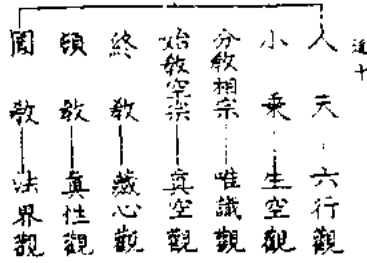 人天 六行觀
小乘 生空觀
分教相宗 唯識觀
始教空宗 真空觀
終教 藏心觀
頓教 真性觀
圓教 法界觀